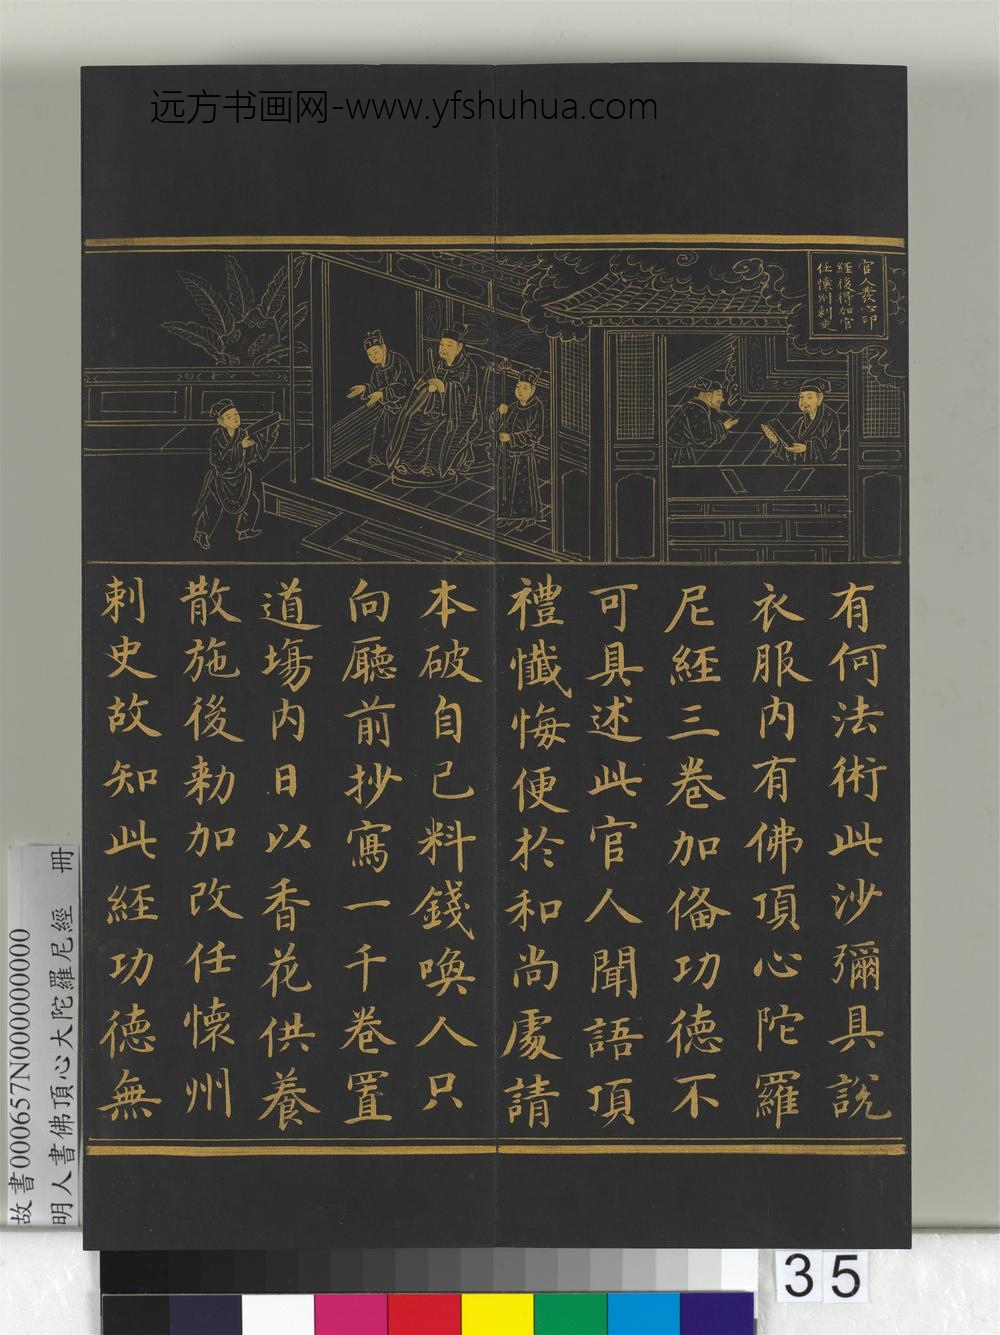 远方书画网-www.yfshuhua.com
官人發心印
經後得加官
任懷州刺史
有何法術此沙彌具說
衣服內有佛頂心陀羅
尼經三卷加俻功德不
可具述此官人聞語頂
禮懺悔便於和尚處請
本破自已料錢喚人只
向廳前抄寫一千卷置
道塲內日以香花供養
散施後勅加改任懷州
刺史故知此經功德無
故書000657N000000000
明人書佛頂心大陀羅尼經 冊
35